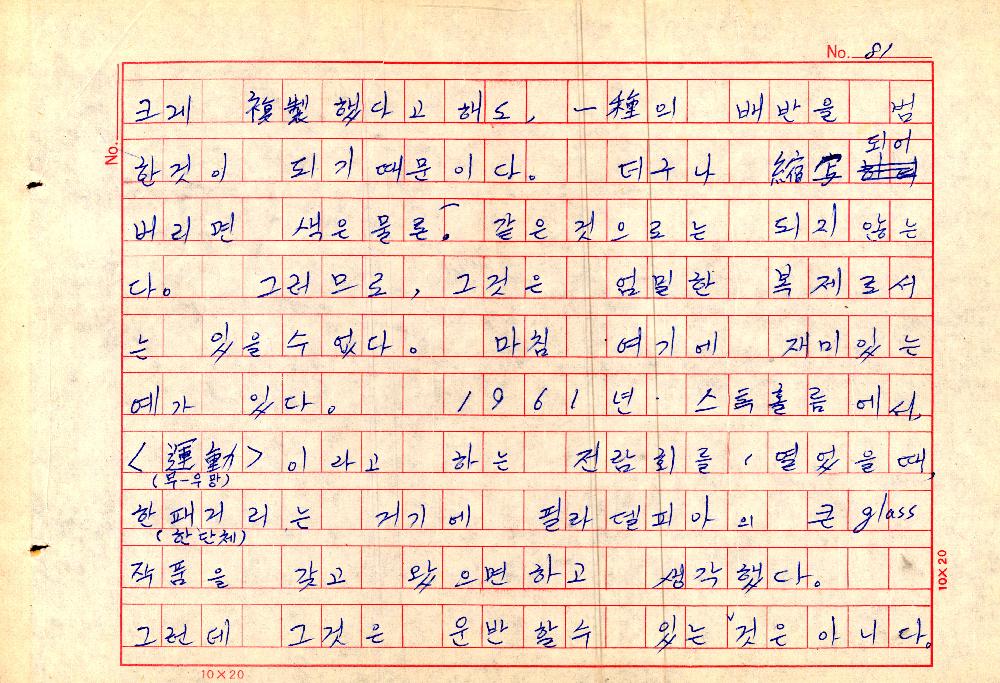 No. 81
No.
크게 複製했다고 해도, 一種의 배반을 범
되어
한것이 되기 때문이다. 더구나 縮写
버리면 색은 물론. 같은 것으로는 되지 않는
다. 그러므로, 그것은 엄밀한 복제로서
는 있을수 없다. 마침 여기에 재미있는
예가 있다. 1961년. 스톡홀름에서,
<運動>이라고 하는 전람회를, 열었을때,
(무-우망)
한패거리는 거기에 필라델피아의 큰 glass
(한단체)
작품을 갖고 왔으면하고 생각했다.
그런데 그것은 운반할수 있는 것은 아니다.
10X20
10X20